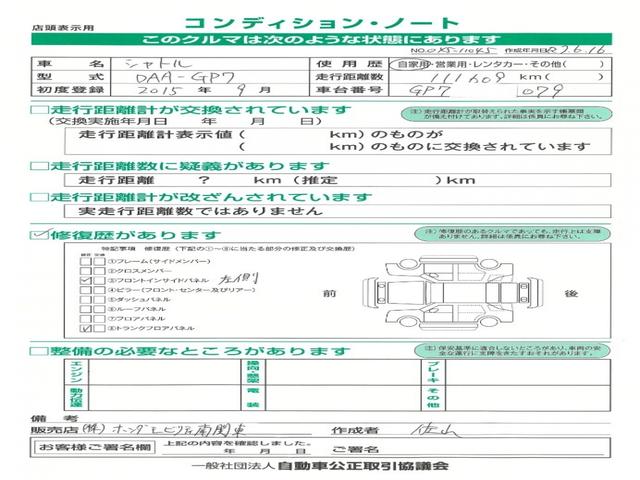 店頭表示用
コンディション・ノート
このクルマは次のような状態にあります
作成年月日R7.6.16
車名 シャトル 使用歴 自家用・営業用・レンタカー・その他( )
型式 DAA-GP7 走行距離数 111609 km( )
初度登録 2015年 9月 車台番号 GP7 079
□走行距離計が交換されています
(交換実施年月日 年 月 日)
注)走行距離計が取替えられた事実を示す帳票類が備え付けてあります。詳細は係員にお尋ね下さい。
走行距離計表示値( km)のものが
( km)のものに交換されています
□走行距離数に疑義があります
走行距離 ? km(推定 )km
□走行距離計が改ざんされています
実走行距離数ではありません
☑修復歴があります
注)修復歴のあるクルマであっても、走行上は支障ありません。詳細は係員にお尋ね下さい。
特記事項 修復歴(下記の①~⑧に当たる部分の修正及び交換歴)
①フレーム(サイドメンバー)
②クロスメンバー
③フロントインサイドパネル 左側
④ピラー(フロント・センター及びリアー)
⑤ダッシュパネル
⑥ルーフパネル
⑦フロアパネル
⑧トランクフロアパネル
前 後
□整備の必要なところがあります
注)保安基準に適合しないところがあり、車両の安全な運行に支障をきたすおそれがあります。
エンジン ブレーキ
動力伝達 電装 その他
備考
販売店 (株)ホンダモビリティ南関東 作成者 佐山
お客様ご署名欄 上記の内容を確認しました。
年 月 日
一般社団法人 自動車公正取引協議会